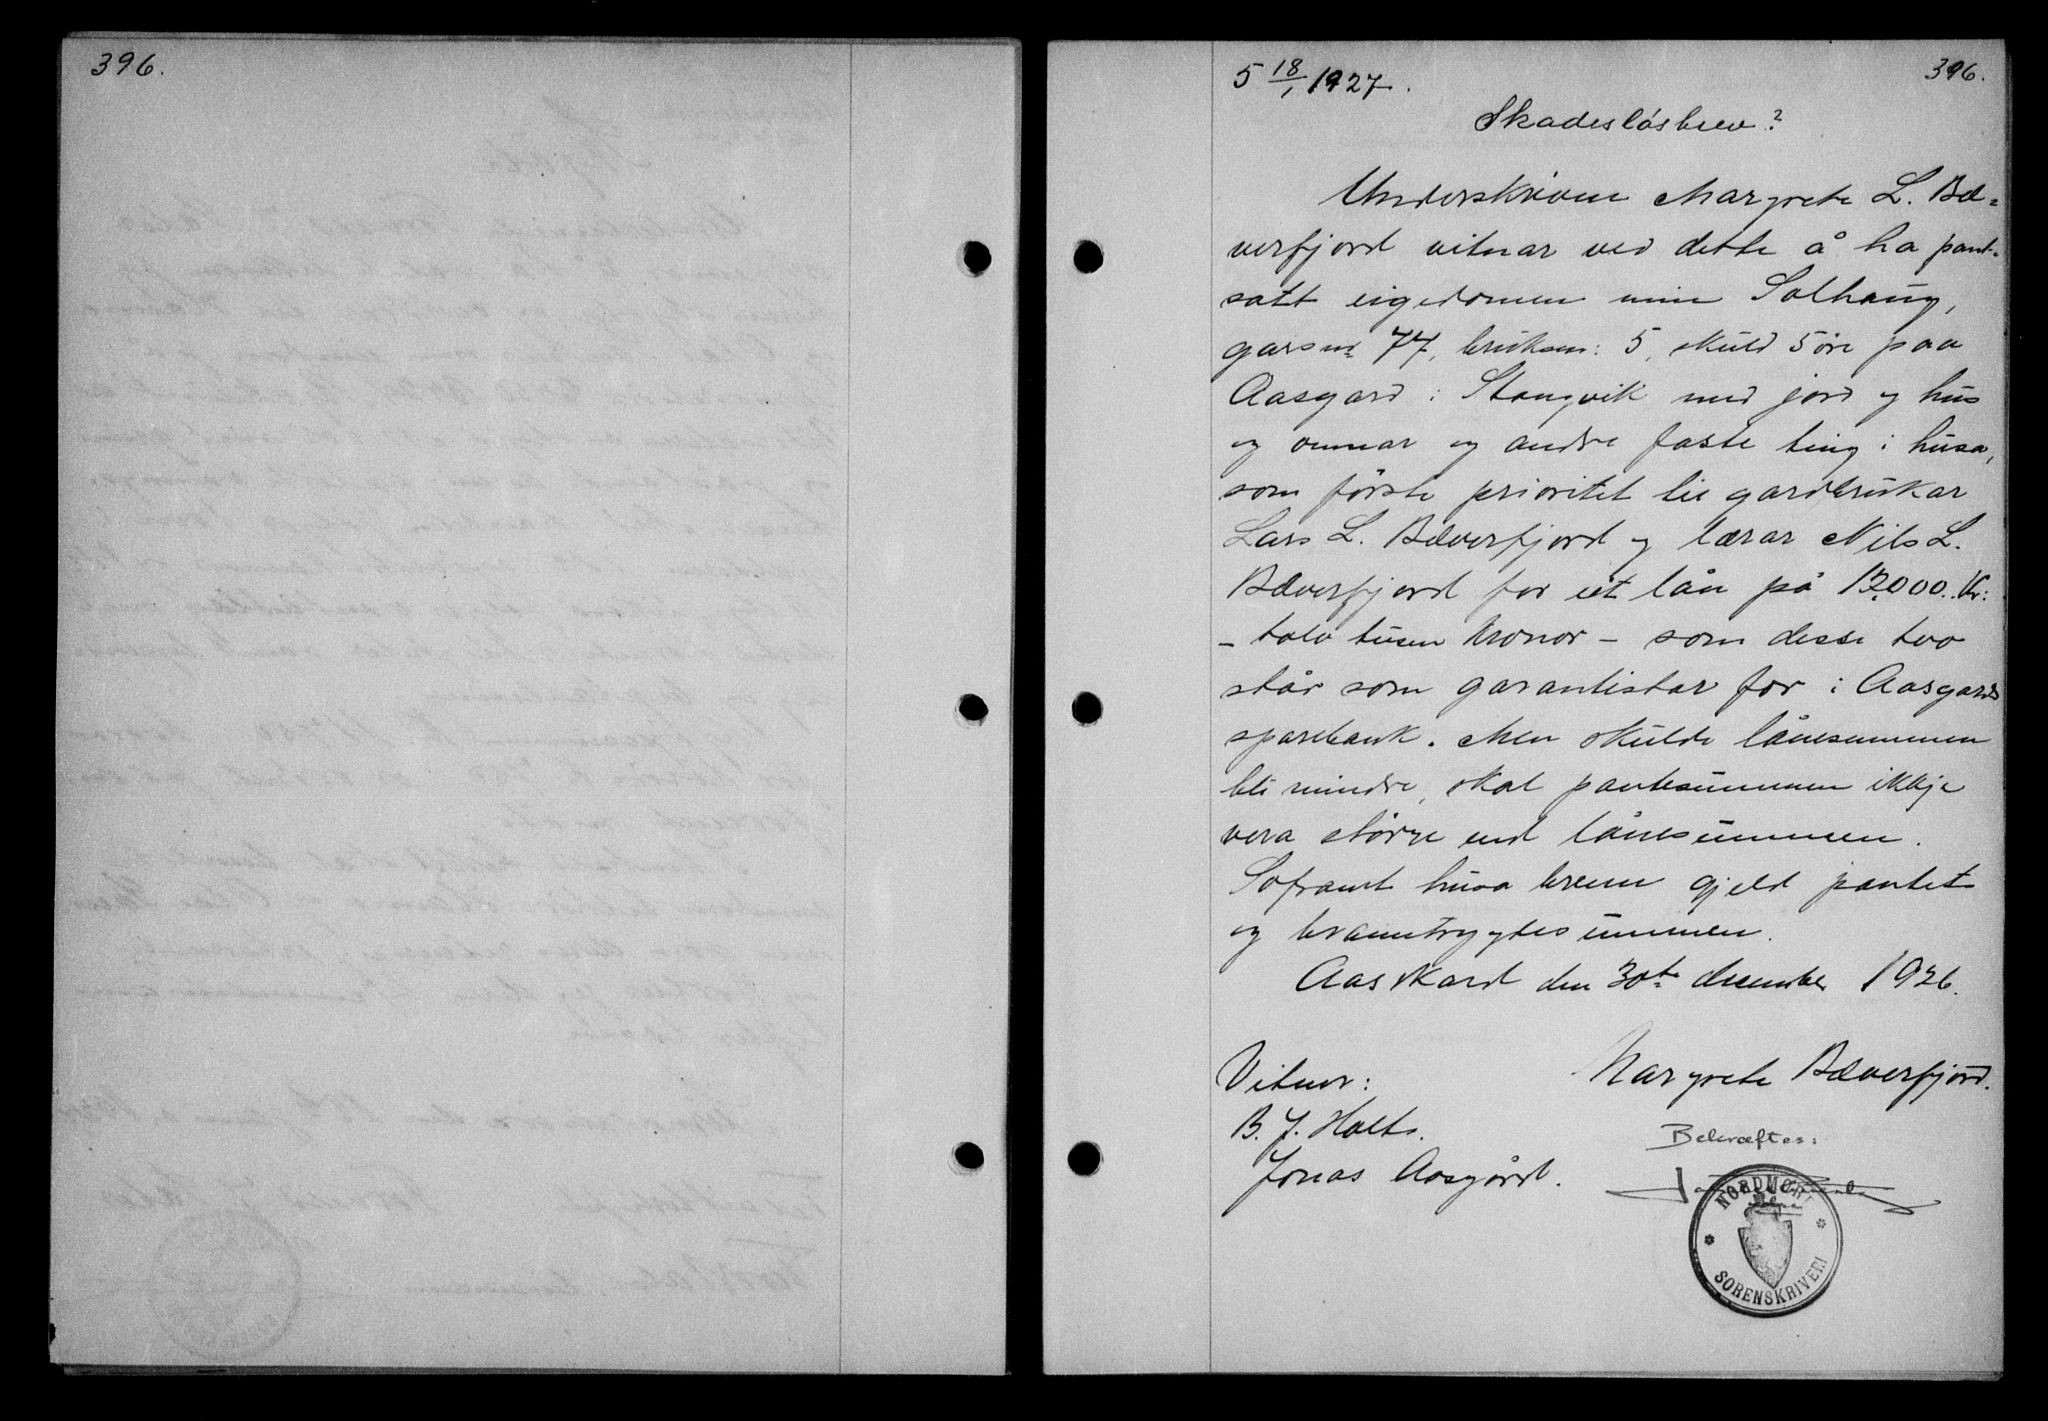 396.
396.
5 18/1 1927.
Skadesløsbrev?
Underskrivne Margrete L. Bæ-
verfjord vitnar ved dette å ha pant-
satt eigedomen min Solhaug,
garsnr 77, bruksnr: 5, skuld 5 øre paa
Aasgard i Stangvik med jord og hus
og omnar og andre faste ting i husa,
som første prioritet til gardbrukar
Lars L. Bæverfjord og lærar Nils L.
Bæverfjord for eit lån på 12000.. Kr:
- tolv tusen kronor - som desse two
står som garantistar for i Aasgards
sparebank. Men skulde lånesummen
bli mindre, skal pantesummen ikkje
vera større end lånesummen.
Soframt husa brenn gjeld pantet
og branntrygdesummen.
Aasskard den 30te desember 1926.
Vitner: Margrete Bæverfjord.
B. J. Holts.
Jonas Aasgård.
Bekræftes:
NORDMØRE
SORENSKRIVERI